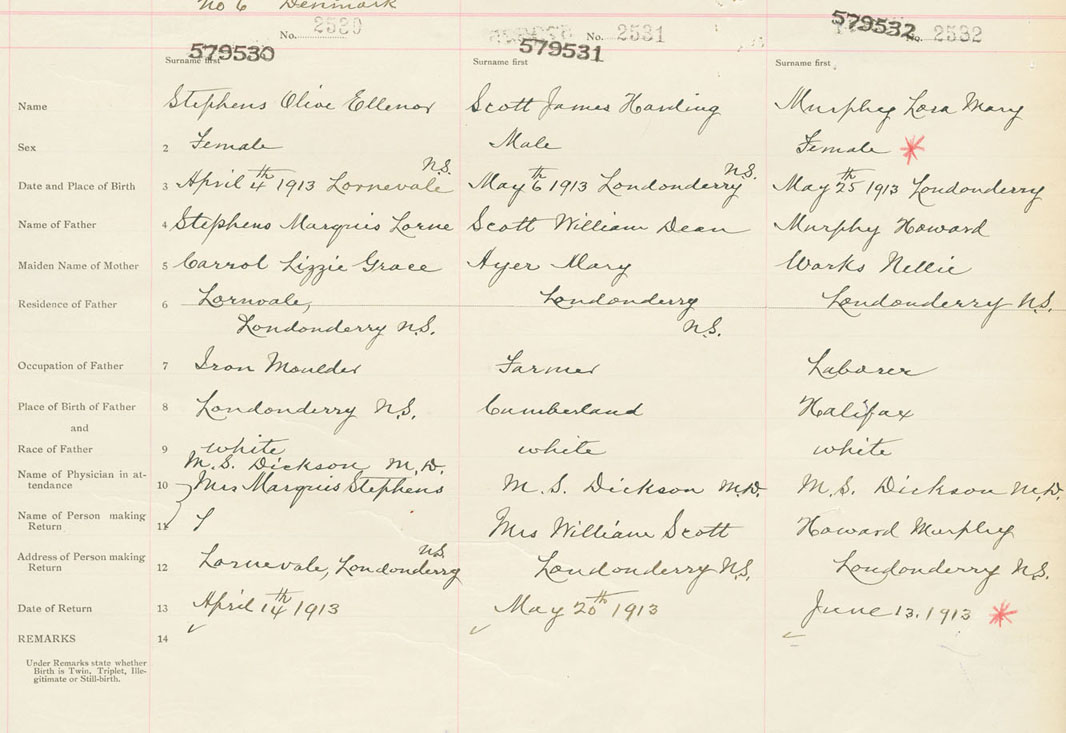 No 6 Denmark
No. 2530 No. 2531 No. 2532
579530 579531 579532
Surname first Surname first Surname first
Name Stephens Olive Ellenor Scott James Harding Murphy Lora Mary
Sex 2 Female Male Female *
Date and Place of Birth 3 April 4th 1913 Lornevale N.S. May 6th 1913 Londonderry N.S. May 25th 1913 Londonderry
Name of Father 4 Stephens Marquis Lorne Scott William Dean Murphy Howard
Maiden Name of Mother 5 Carrol Lizzie Grace Ayer Mary Works Nellie
Residence of Father 6 Lornvale, Londonderry Londonderry N.S.
Londonderry N.S. N.S.
Occupation of Father 7 Iron Moulder Farmer Laborer
Place of Birth of Father 8 Londonderry N.S. Cumberland Halifax
and
Race of Father 9 white white white
M.S. Dickson M.D.
Name of Physician in at-
tendance 10 Mrs Marquis Stephens M.S. Dickson M.D. M.S. Dickson M.D.
Name of Person making
Return 11 Mrs William Scott Howard Murphy
Address of Person making
Return 12 Lornevale, Londonderry N.S. Londonderry N.S. Londonderry N.S.
Date of Return 13 April 14th 1913 May 20th 1913 June 13. 1913 *
REMARKS 14
Under Remarks state whether
Birth is Twin, Triplet, Ille-
gitimate or Still-birth.